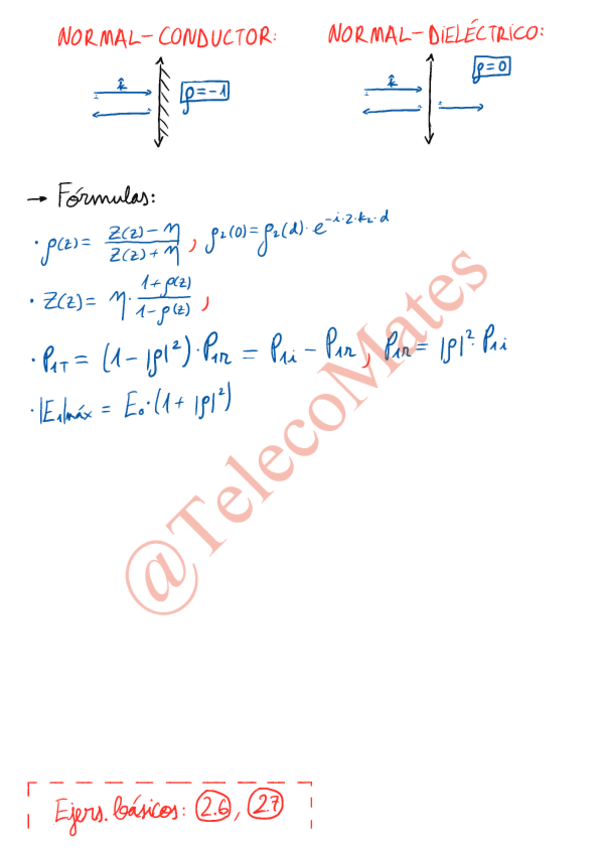 NORMAL-CONDUCTOR:
NORMAL-DIELÉCTRICO:
k̂
ρ=-1
k̂
ρ=0
→ Fórmulas:
· ρ(z) = (Z(z) - η)/(Z(z) + η), ρ₂(0) = ρ₂(d) · e^(-i·2·k₂·d)
· Z(z) = η · (1+ρ(z))/(1-ρ(z)),
· P₁T = (1-|ρ|²) · P₁r = P₁i - P₁r, P₁r = |ρ|² · P₁i
· |E₁|máx = E₀ · (1+|ρ|²)
@TelecoMates
Ejers. básicos: 2.6, 2.7